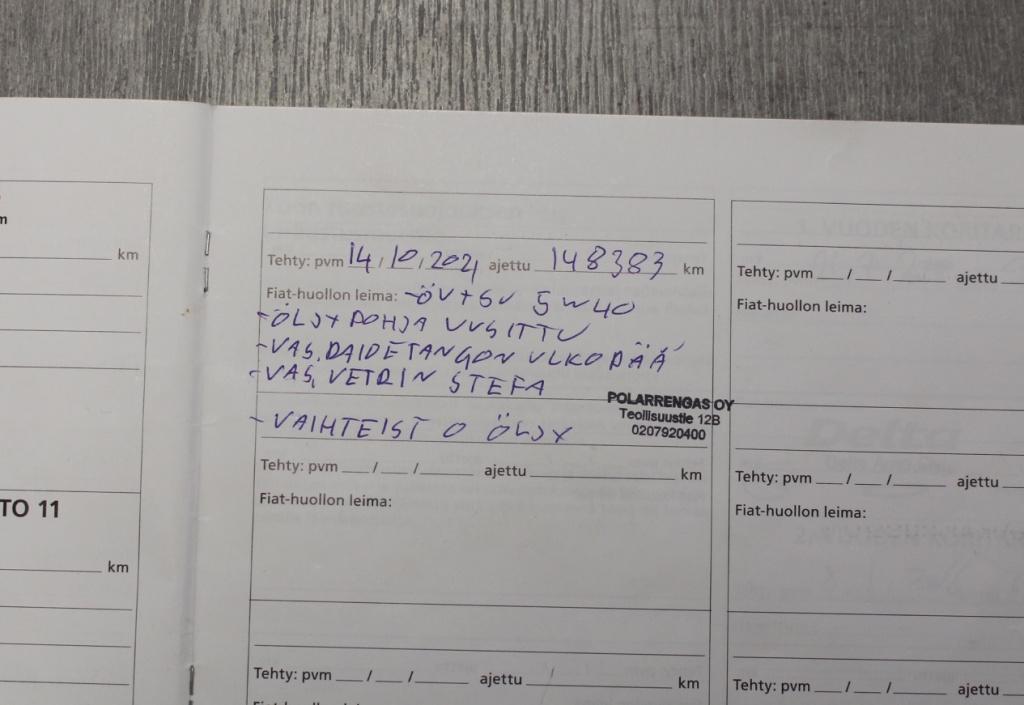 m
km
TO 11
km
Tehty: pvm 14 / 10 / 2021 ajettu 148383 km
Fiat-huollon leima: -ÖV+SV 5W40
-ÖLJYPOHJA UUSITTU
-VAS. RAIDETANGON ULKOPÄÄ
-VAS. VETRIN STEFA
-VAIHTEISTO ÖLJY
POLARRENGAS OY
Teollisuustie 12B
0207920400
Tehty: pvm / / ajettu km
Fiat-huollon leima:
Tehty: pvm / / ajettu km
Tehty: pvm / / ajettu
Fiat-huollon leima:
Tehty: pvm / / ajettu
Fiat-huollon leima:
Tehty: pvm / / ajettu